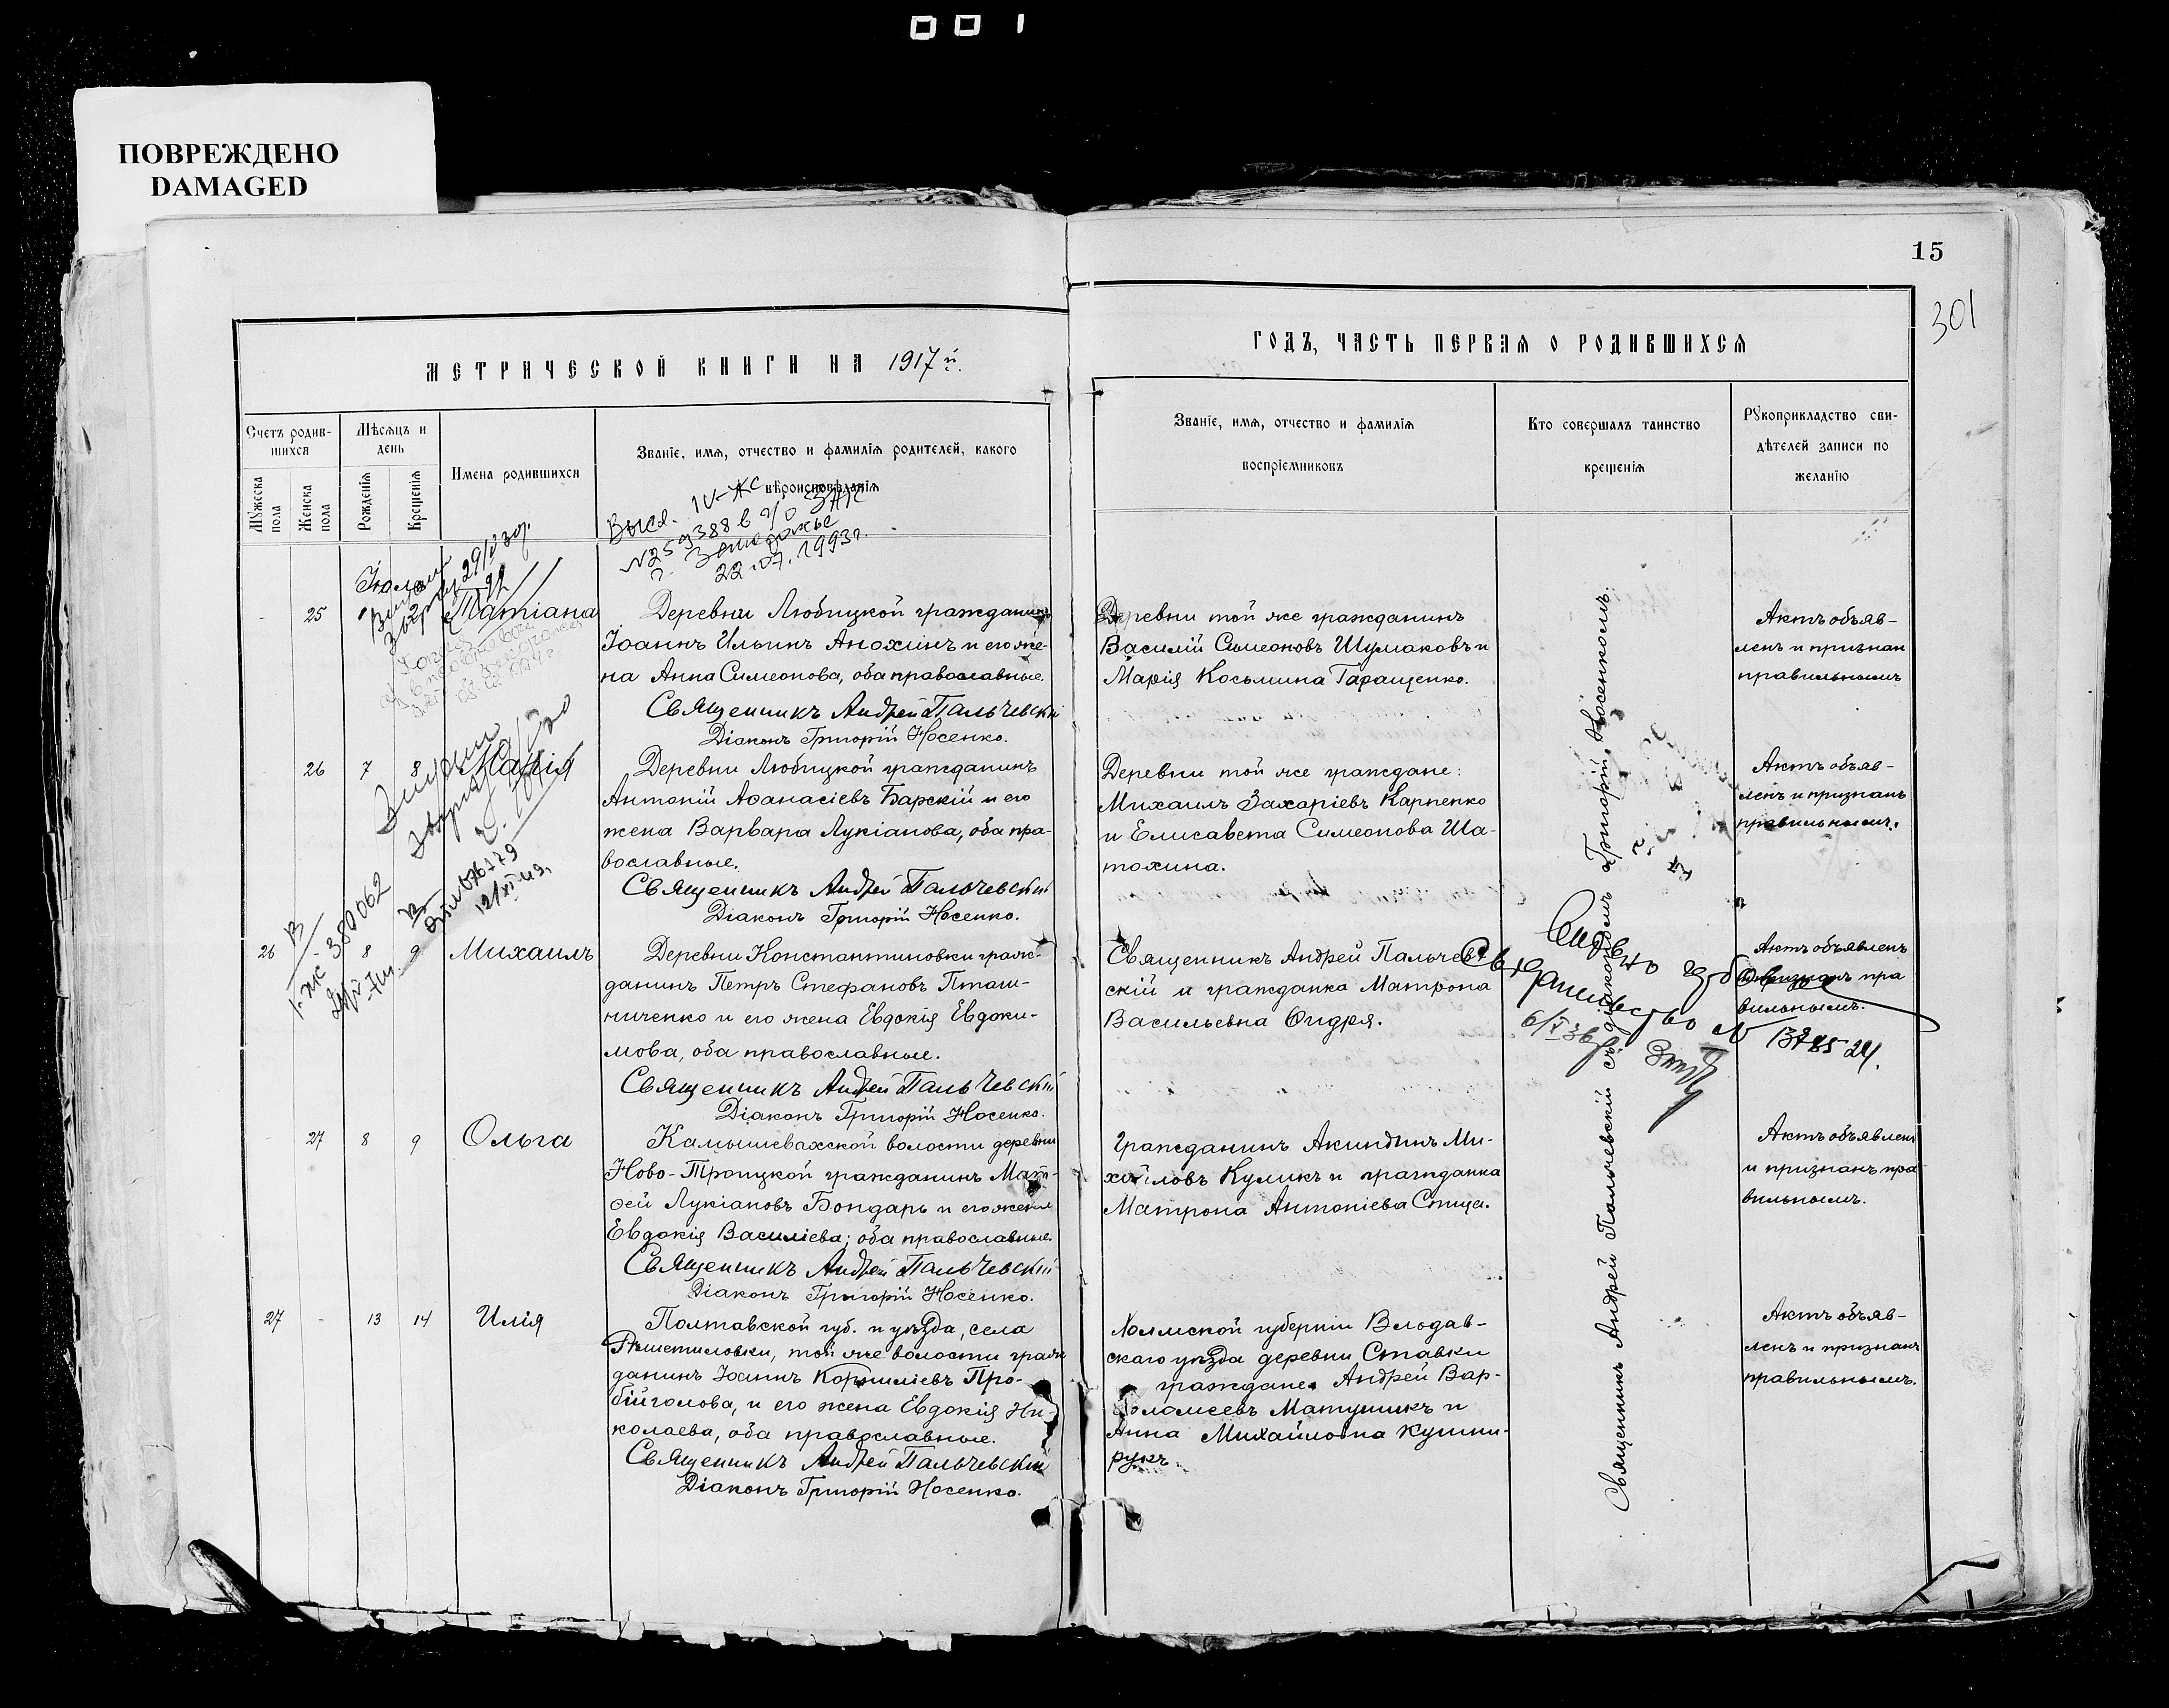 001
ПОВРЕЖДЕНО
DAMAGED
15
301
МЕТРИЧЕСКОЙ КНИГИ НА 1917 й.
ГОДЪ, ЧАСТЬ ПЕРВАЯ О РОДИВШИХСЯ
Счетъ родив-
шихся
Мѣсяцъ и
день
Мужеска пола
Женска пола
Рожденія
Крещенія
Имена родившихся
Званіе, имя, отчество и фамилія родителей, какого
вѣроисповѣданія
Званіе, имя, отчество и фамилія
воспріемниковъ
Кто совершалъ таинство
крещенія
Рукоприкладство сви-
дѣтелей записи по
желанію
Высл. IV-ЖС
N259388 в г/о ЗАГС
г. Запорожье
22.07.1993г.
- 25 Татіана
Деревни Любицкой гражданинъ
Іоаннъ Ильинъ Анохинъ и его же-
на Анна Симеонова, оба православные.
Священникъ Андрей Пальчевскій
Діаконъ Григорій Носенко.
Деревни той же гражданинъ
Василій Симеоновъ Шумаковъ и
Марія Косьмина Таращенко.
Актъ объяв-
ленъ и признан
правильнымъ
- 26 7 8 Марія
Деревни Любицкой гражданинъ
Антоній Аѳанасіевъ Барскій и его
жена Варвара Лукіанова, оба пра-
вославные.
Священникъ Андрей Пальчевскій
Діаконъ Григорій Носенко.
Деревни той же граждане:
Михаилъ Захаріевъ Карпенко
и Елисавета Симеонова Ша-
тохина.
Актъ объяв-
ленъ и признанъ
правильнымъ.
380062
12/XI-49.
26 - 8 9 Михаилъ
Деревни Константиновки граж-
данинъ Петръ Стефановъ Пташ-
ниченко и его жена Евдокія Евдоки-
мова, оба православные.
Священникъ Андрей Пальчевскій
Діаконъ Григорій Носенко.
Священникъ Андрей Пальчев-
скій и гражданка Матрона
Васильевна Ондря.
Актъ объявленъ
и признанъ пра
вильнымъ.
- 27 8 9 Ольга
Камышевахской волости деревни
Ново-Троицкой гражданинъ Мат-
ѳей Лукіановъ Бондарь и его жена
Евдокія Василіева; оба православные.
Священникъ Андрей Пальчевскій
Діаконъ Григорій Носенко.
Гражданинъ Акиндинъ Ми-
хайловъ Куликъ и гражданка
Матрона Антоніева Спица.
Актъ объявлен
и признанъ пра
вильнымъ.
27 - 13 14 Илія
Полтавской губ. и уѣзда, села
Рѣшетиловки, той же волости граж
данинъ Іоаннъ Корниліевъ Про-
бійголова, и его жена Евдокія Ни-
колаева, оба православные.
Священникъ Андрей Пальчевскій
Діаконъ Григорій Носенко.
Холмской губерніи Влодав-
скаго уѣзда деревни Ставки
граждане Андрей Вар-
ѳоломеевъ Матушикъ и
Анна Михайловна Кушни-
рукъ.
Актъ объяв-
ленъ и признанъ
правильнымъ.
Священникъ Андрей Пальчевскій съ діакономъ Григорій Носенкомъ.